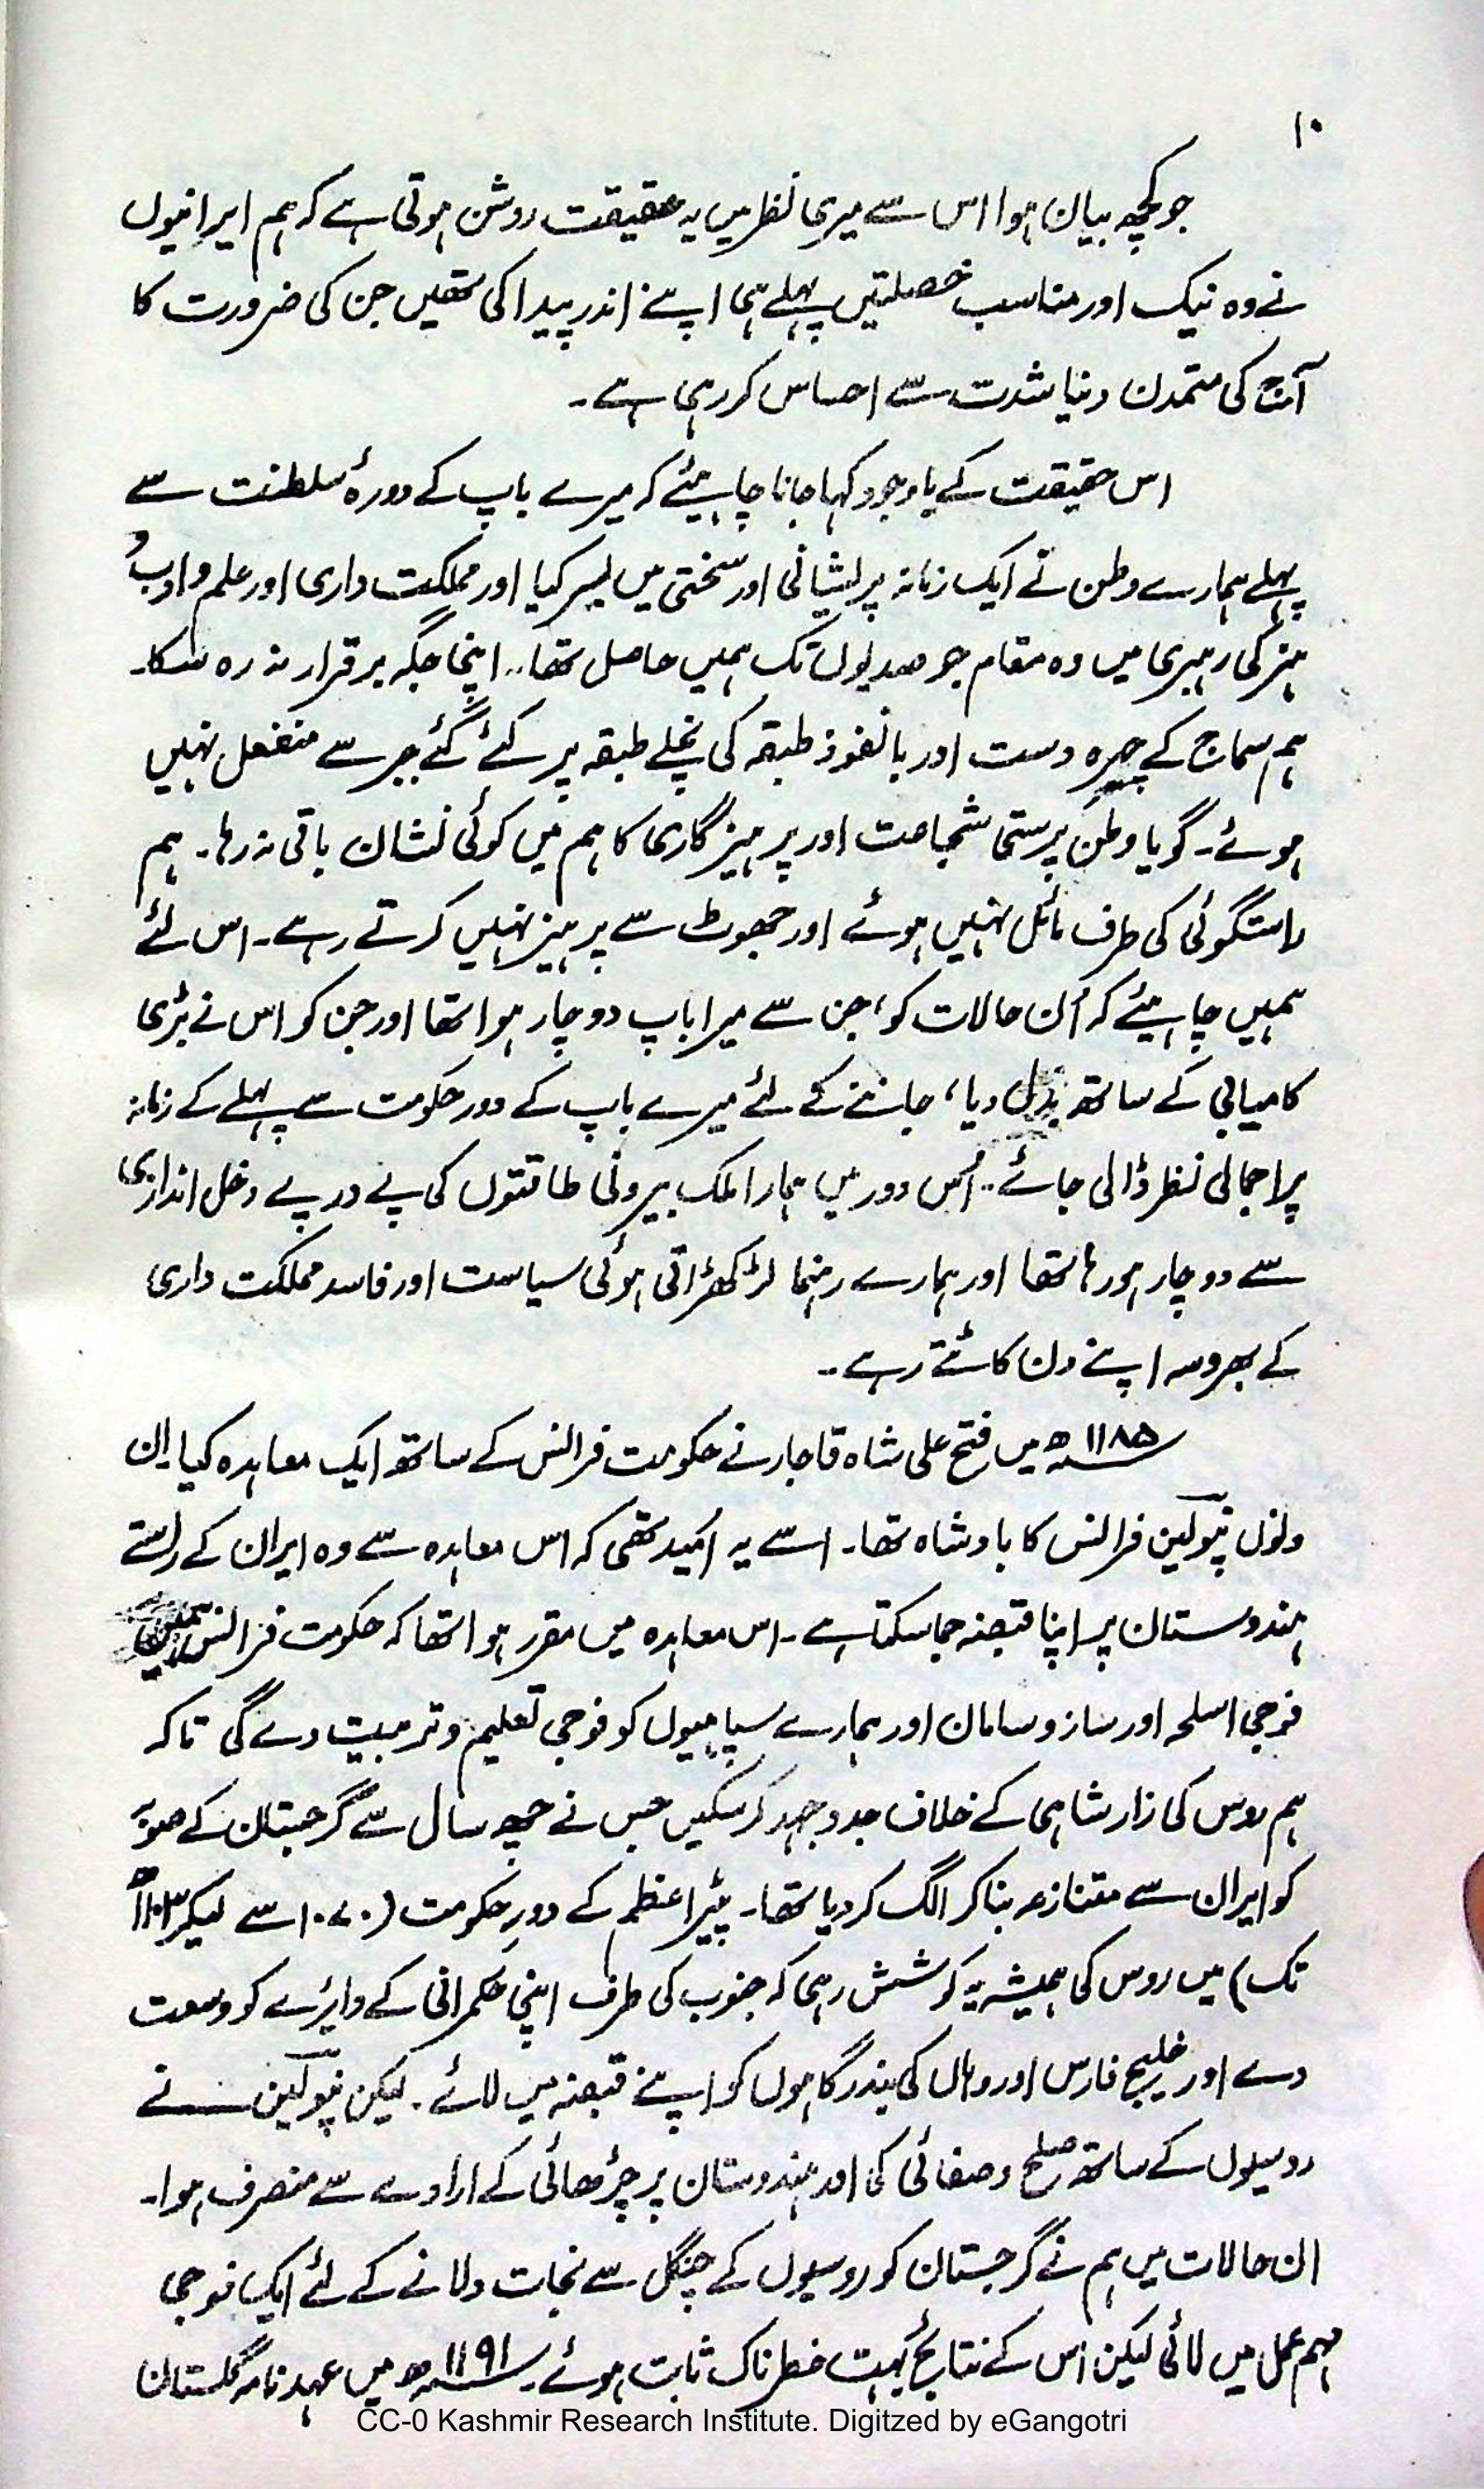 ۱۰
جو کچھ بیان ہوا اس سے میری نظر میں یہ حقیقت روشن ہوتی ہے کہ ہم ایرانیوں
نے وہ نیک اور مناسب خصلتیں پہلے ہی اپنے اندر پیدا کی تھیں جن کی ضرورت کا
آج کی متمدن دنیا شدت سے احساس کر رہی ہے۔
اس حقیقت کے باوجود کہا جانا چاہیئے کہ میرے باپ کے دورۂ سلطنت سے
پہلے ہمارے وطن نے ایک زمانہ پریشانی اور سختی میں بسر کیا اور مملکت داری اور علم و ادب و
ہنر کی رہبری میں وہ مقام جو صدیوں تک ہمیں حاصل تھا۔ اپنی جگہ برقرار نہ رہ سکا۔
ہم سماج کے چیرہ دست اور بانفوذ طبقہ کی نچلے طبقہ پر کئے گئے جبر سے منفعل نہیں
ہوئے۔ گویا وطن پرستی شجاعت اور پرہیزگاری کا ہم میں کوئی نشان باقی نہ رہا۔ ہم
راستگوئی کی طرف مائل نہیں ہوئے اور جھوٹ سے پرہیز نہیں کرتے رہے۔ اس لئے
ہمیں چاہیئے کہ اُن حالات کو، جن سے میرا باپ دوچار ہوا تھا اور جن کو اس نے بڑی
کامیابی کے ساتھ بدل دیا، جاننے کے لئے میرے باپ کے دور حکومت سے پہلے کے زمانہ
پر اجمالی نظر ڈالی جائے۔ اُس دور میں ہمارا ملک بیرونی طاقتوں کی پے در پے دخل اندازی
سے دوچار ہو رہا تھا اور ہمارے رہنما لڑکھڑاتی ہوئی سیاست اور فاسد مملکت داری
کے بھروسہ اپنے دن کاٹتے رہے۔
۱۱۸۵ھ میں فتح علی شاہ قاجار نے حکومت فرانس کے ساتھ ایک معاہدہ کیا ان
دنوں نپولین فرانس کا بادشاہ تھا۔ اسے یہ اُمید تھی کہ اس معاہدہ سے وہ ایران کے راستے
ہندوستان پر اپنا قبضہ جما سکتا ہے۔ اس معاہدہ میں مقرر ہوا تھا کہ حکومت فرانس ہمیں
فوجی اسلحہ اور ساز و سامان اور ہمارے سپاہیوں کو فوجی تعلیم و تربیت دے گی تاکہ
ہم روس کی زار شاہی کے خلاف جدوجہد کر سکیں جس نے چھ سال سے گرجستان کے صوبہ
کو ایران سے متنازعہ بنا کر الگ کر دیا تھا۔ پیٹر اعظم کے دورِ حکومت (۱۰۷۰ سے لیکر ۱۱۰۳ھ
تک) میں روس کی ہمیشہ یہ کوشش رہی کہ جنوب کی طرف اپنی حکمرانی کے دایرے کو وسعت
دے اور خلیج فارس اور وہاں کی بندرگاہوں کو اپنے قبضہ میں لائے۔ لیکن نپولین نے
روسیوں کے ساتھ صلح و صفائی کی اور ہندوستان پر چڑھائی کے ارادے سے منصرف ہوا۔
ان حالات میں ہم نے گرجستان کو روسیوں کے چنگل سے نجات دلانے کے لئے ایک فوجی
مہم عمل میں لائی لیکن اس کے نتایج بہت خطرناک ثابت ہوئے۔ ۱۱۹۱ھ میں عہد نامہ گلستان
CC-0 Kashmir Research Institute. Digitzed by eGangotri